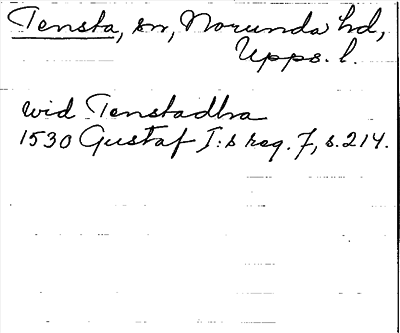 Tensta, sn, Norunda hd,
Upps. l.
wid Tenstadhra
1530 Gustaf I:s reg. 7, s. 214.